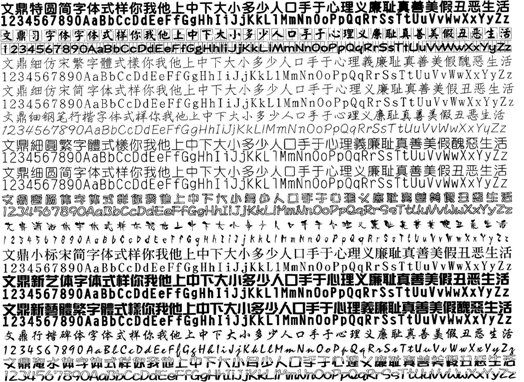 文鼎特圆简字体式样你我他上中下大小多少人口手于心理义廉耻真善美假丑恶生活
1234567890AaBbCcDdEeFfGgHhIiJjKkLlMmNnOoPpQqRrSsTtUuVvWwXxYyZz
文鼎习字简字体式样你我他上中下大小多少人口手于心理义廉耻真善美假丑恶生活
1234567890AaBbCcDdEeFfGgHhIiJjKkLlMmNnOoPpQqRrSsTtUuVvWwXxYyZz
文鼎細仿宋繁字體式樣你我他上中下大小多少人口手于心理義廉耻真善美假醜惡生活
1234567890AaBbCcDdEeFfGgHhIiJjKkLlMmNnOoPpQqRrSsTtUuVvWwXxYyZz
文鼎细仿宋简字体式样你我他上中下大小多少人口手于心理义廉耻真善美假丑恶生活
1234567890AaBbCcDdEeFfGgHhIiJjKkLlMmNnOoPpQqRrSsTtUuVvWwXxYyZz
文鼎细钢笔行楷字体式样你我他上中下大小多少人口手于心理义廉耻真善美假丑恶生活
1234567890AaBbCcDdEeFfGgHhIiJjKkLlMmNnOoPpQqRrSsTtUuVvWwXxYyZz
文鼎細圓繁字體式樣你我他上中下大小多少人口手于心理義廉耻真善美假醜惡生活
1234567890AaBbCcDdEeFfGgHhIiJjKkLlMmNnOoPpQqRrSsTtUuVvWwXxYyZz
文鼎细圆简字体式样你我他上中下大小多少人口手于心理义廉耻真善美假丑恶生活
1234567890AaBbCcDdEeFfGgHhIiJjKkLlMmNnOoPpQqRrSsTtUuVvWwXxYyZz
1234567890AaBbCcDdEeFfGgHhIiJjKkLlMmNnOoPpQqRrSsTtUuVvWwXxYyZz
1234567890AaBbCcDdEeFfGgHhIiJjKkLlMmNnOoPpQqRrSsTtUuVvWwXxYyZz
文鼎小标宋简字体式样你我他上中下大小多少人口手于心理义廉耻真善美假丑恶生活
1234567890AaBbCcDdEeFfGgHhIiJjKkLlMmNnOoPpQqRrSsTtUuVvWwXxYyZz
文鼎新艺体字体式样你我他上中下大小多少人口手于心理义廉耻真善美假丑恶生活
1234567890AaBbCcDdEeFfGgHhIiJjKkLlMmNnOoPpQqRrSsTtUuVvWwXxYyZz
文鼎新藝體繁字體式樣你我他上中下大小多少人口手于心理義廉耻真善美假醜惡生活
1234567890AaBbCcDdEeFfGgHhIiJjKkLlMmNnOoPpQqRrSsTtUuVvWwXxYyZz
文鼎行楷碑体字体式样你我他上中下大小多少人口手于心理义廉耻真善美假丑恶生活
1234567890AaBbCcDdEeFfGgHhIiJjKkLlMmNnOoPpQqRrSsTtUuVvWwXxYyZz
1234567890AaBbCcDdEeFfGgHhIiJjKkLlMmNnOoPpQqRrSsTtUuVvWwXxYyZz